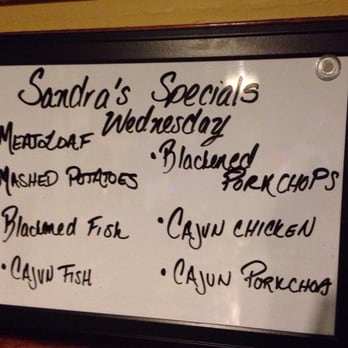 Sandra's Specials
Wednesday
MEATOLOAF
MASHED POTATOES
Blackened Fish
• CAJUN FISH
• Blackened
PORKCHOPS
• CAJUN CHICKEN
• CAJUN PORKCHOPS